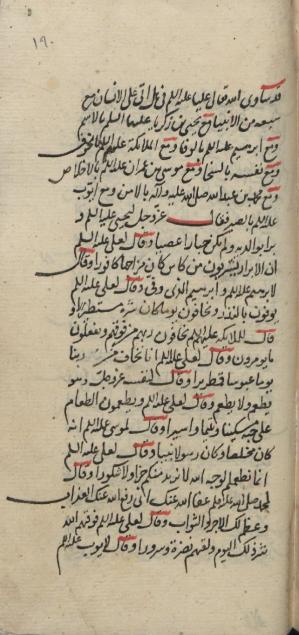 ١٩٠
قد ساوى الله تعالى عليا عليه السلم في هل اتى على الانسان مع
سبعه من الانبيا مع يحيى بن زكريا عليهما السلم بالاسم
ومع ابرهيم عليه السلم بالوفا ومع الملائكة عليهم السلم بالخوف
ومع نفسه بالسخا ومع موسى بن عمران عليه السلم بالاخلاص
ومع محمد بن عبد الله صلى الله عليه واله بالامن ومع ايوب
عليه السلم بالصبر فقال عز وجل ليحيى عليه السلم و
برا بوالديه ولم يكن جبارا عصيا وقال لعلي عليه السلم
ان الابرار يشربون من كاس كان مزاجها كافورا وقال
لابرهيم عليه السلم وابرهيم الذي وفى وقال لعلي عليه السلم
يوفون بالنذر ويخافون يوما كان شره مستطيرا و
قال للملائكة عليهم السلم يخافون ربهم من فوقهم ويفعلون
ما يومرون وقال لعلي عليه السلم انا نخاف من ربنا
يوما عبوسا قمطريرا وقال لنفسه عز وجل وهو
يطعم ولا يطعم وقال لعلي عليه السلم ويطعمون الطعام
على حبه مسكينا ويتيما واسيرا وقال لموسى عليه السلم انه
كان مخلصا وكان رسولا نبيا وقال لعلي عليه السلم
انما نطعمكم لوجه الله لا نريد منكم جزاء ولا شكورا وقال
لمحمد صلى الله عليه واله عفا الله عنك اي رفع الله عنك العذاب
وعظم لك الاجر والثواب وقال لعلي عليه السلم فوقيهم الله
شر ذلك اليوم ولقيهم نضرة وسرورا وقال لايوب عليه السلم